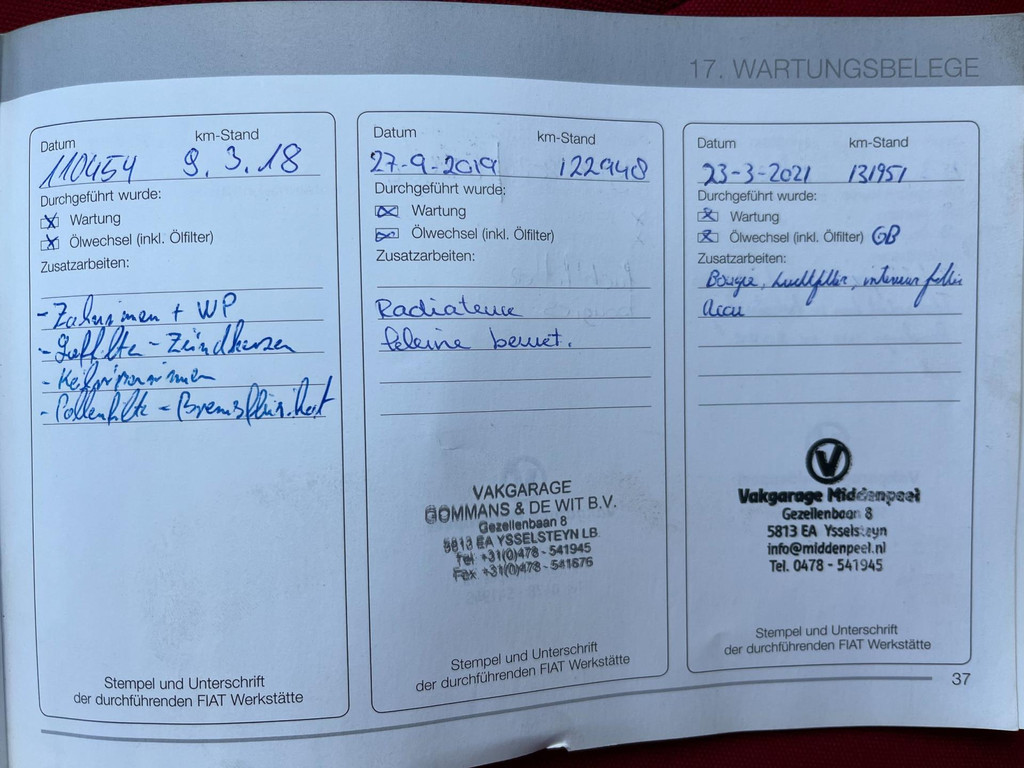 17. WARTUNGSBELEGE
Datum km-Stand
110454 9.3.18
Durchgeführt wurde:
Wartung
Ölwechsel (inkl. Ölfilter)
Zusatzarbeiten:
- Zahnrimen + WP
- Luffilte - Zündkerzen
- Pollenfilte - Bremsflüs.
Stempel und Unterschrift
der durchführenden FIAT Werkstätte
Datum km-Stand
27-9-2019 122948
Durchgeführt wurde:
Wartung
Ölwechsel (inkl. Ölfilter)
Zusatzarbeiten:
Radiateur
VAKGARAGE
GOMMANS & DE WIT B.V.
Gezellenbaan 8
5813 EA YSSELSTEYN LB.
Tel. +31(0)478 - 541945
Fax +31(0)478 - 541676
Stempel und Unterschrift
der durchführenden FIAT Werkstätte
Datum km-Stand
23-3-2021 131951
Durchgeführt wurde:
Wartung
Ölwechsel (inkl. Ölfilter) GB
Zusatzarbeiten:
Bougie, Luchtfilter, interieur
Accu
Vakgarage Middenpeel
Gezellenbaan 8
5813 EA Ysselsteyn
info@middenpeel.nl
Tel. 0478 - 541945
Stempel und Unterschrift
der durchführenden FIAT Werkstätte
37